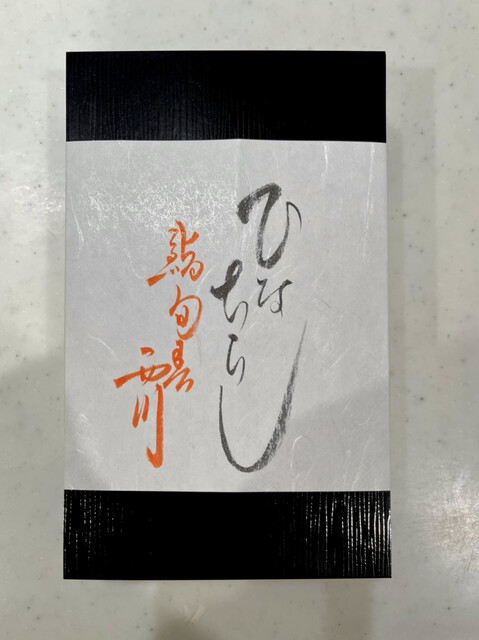 ひなちらし
鮨旬美西川